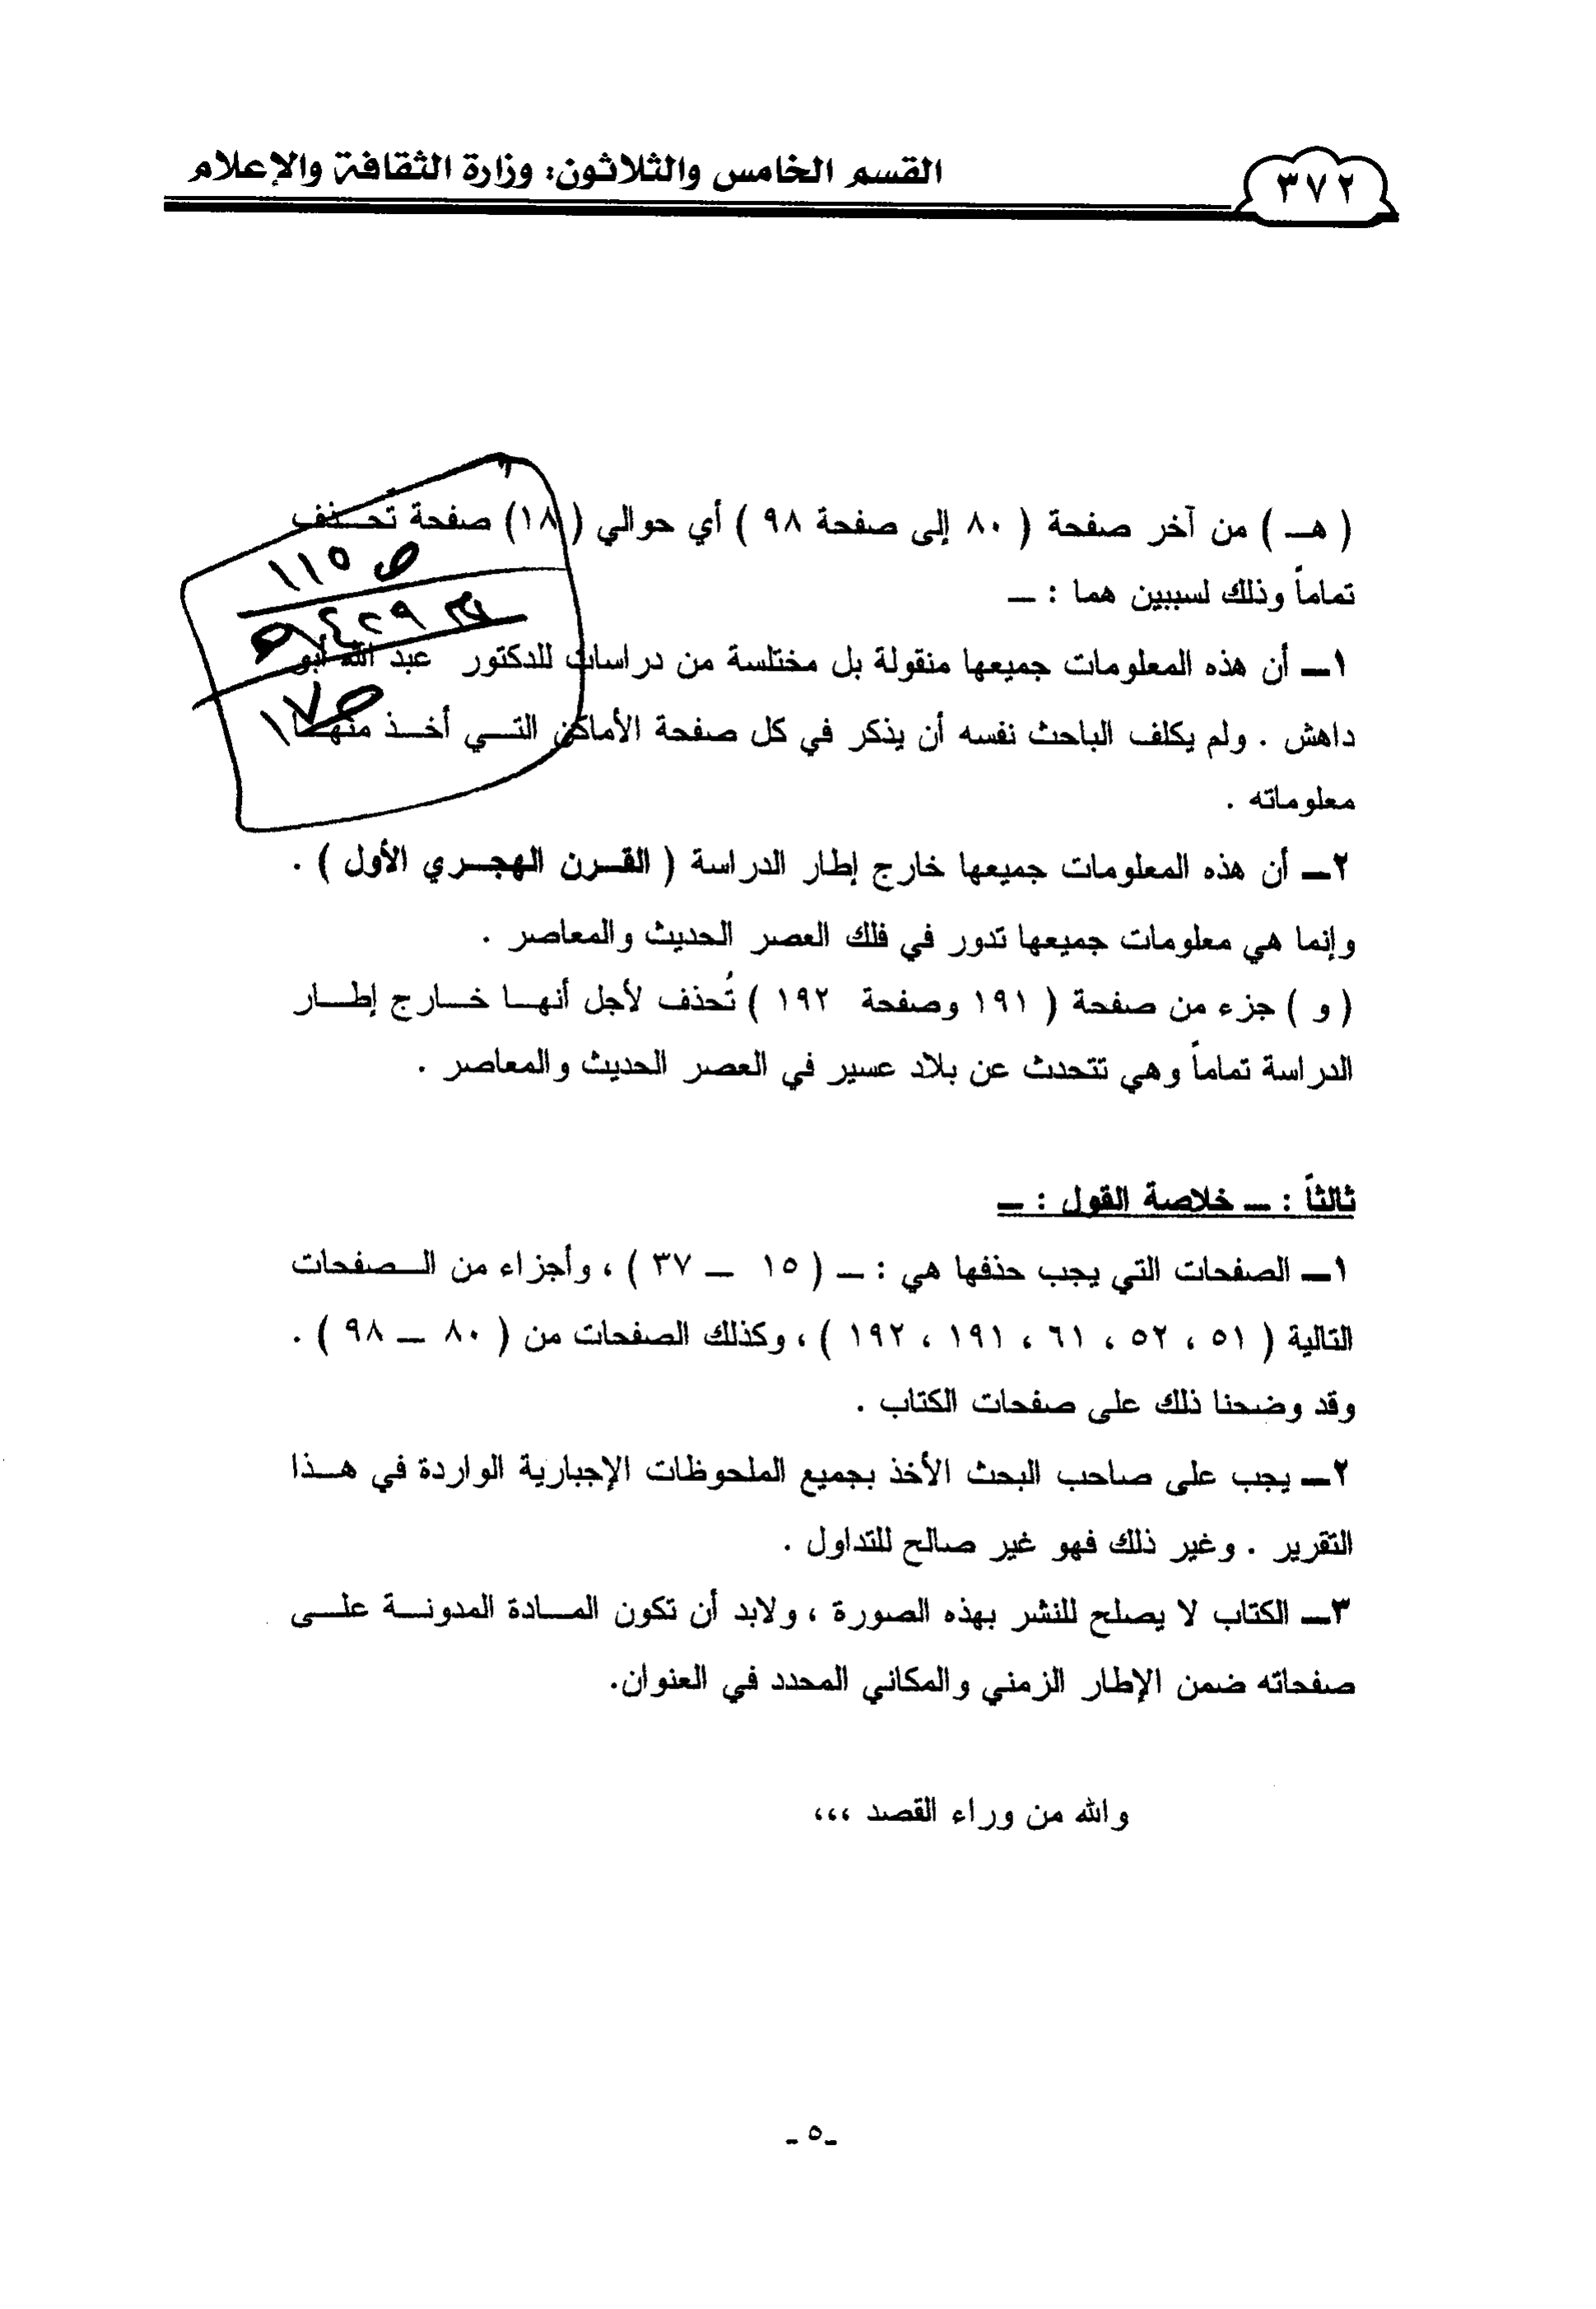 القسم الخامس والثلاثون: وزارة الثقافة والإعلام
٣٧٢
( هـ ) من آخر صفحة ( ٨٠ إلى صفحة ٩٨ ) أي حوالي ( ١٨) صفحة تحذف
تماماً وذلك لسببين هما : ـ
١ـ أن هذه المعلومات جميعها منقولة بل مختلسة من دراسات للدكتور عبد الله أبو
داهش . ولم يكلف الباحث نفسه أن يذكر في كل صفحة الأماكن التي أخذ منها
معلوماته .
٢ـ أن هذه المعلومات جميعها خارج إطار الدراسة ( القرن الهجري الأول ) .
وإنما هي معلومات جميعها تدور في فلك العصر الحديث والمعاصر .
( و ) جزء من صفحة ( ١٩١ وصفحة ١٩٢ ) تُحذف لأجل أنها خارج إطار
الدراسة تماماً وهي تتحدث عن بلاد عسير في العصر الحديث والمعاصر .
ثالثاً : ـ خلاصة القول : ـ
١ـ الصفحات التي يجب حذفها هي : ـ ( ١٥ ـ ٣٧ ) ، وأجزاء من الصفحات
التالية ( ٥١ ، ٥٢ ، ٦١ ، ١٩١ ، ١٩٢ ) ، وكذلك الصفحات من ( ٨٠ ـ ٩٨ ) .
وقد وضحنا ذلك على صفحات الكتاب .
٢ـ يجب على صاحب البحث الأخذ بجميع الملحوظات الإجبارية الواردة في هذا
التقرير . وغير ذلك فهو غير صالح للتداول .
٣ـ الكتاب لا يصلح للنشر بهذه الصورة ، ولابد أن تكون المادة المدونة على
صفحاته ضمن الإطار الزمني والمكاني المحدد في العنوان.
والله من وراء القصد ،،،
ـ ٥ ـ
ص ١١٥
ص ١٧